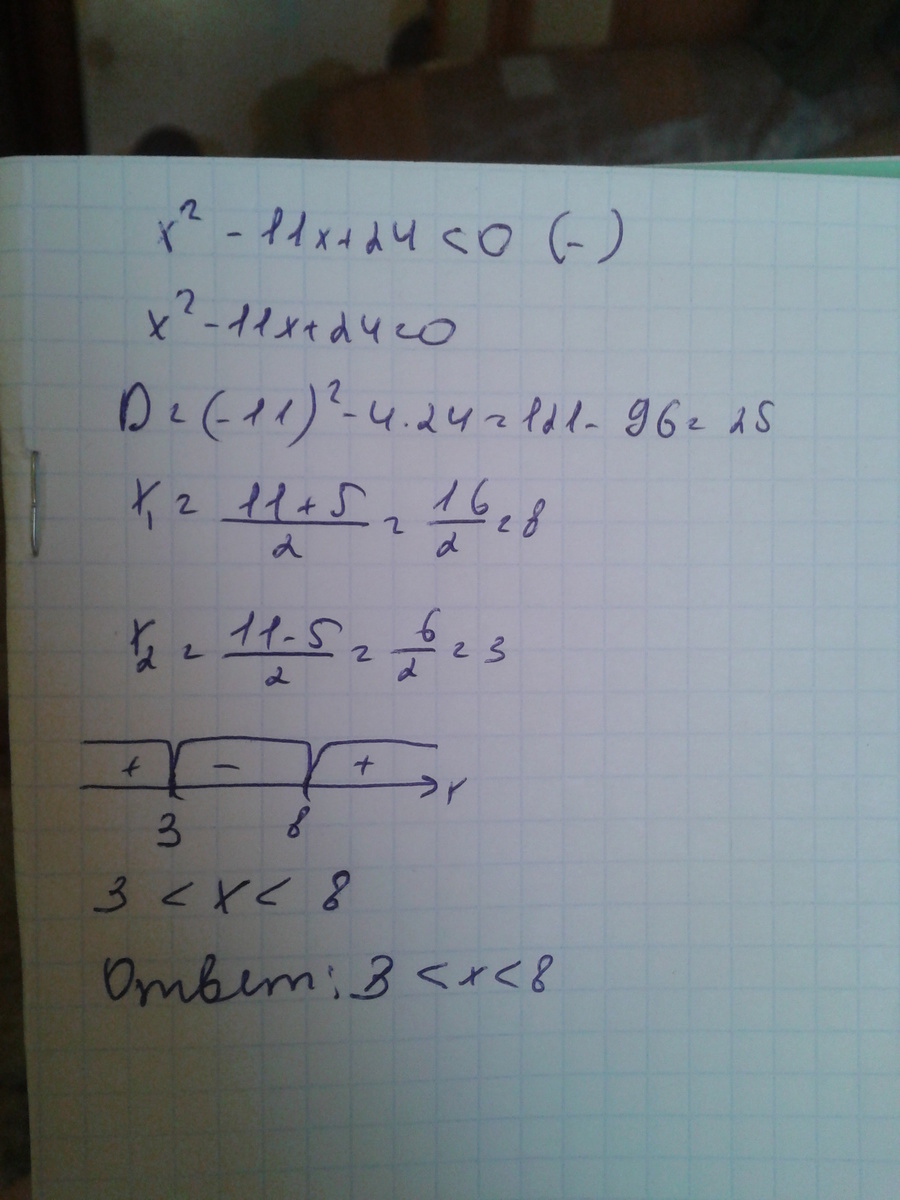 x² - 11x+24 <0 (-)
x² - 11x+24=0
D = (-11)² - 4·24 = 121 - 96 = 25
x₁ = (11+5)/2 = 16/2 = 8
x₂ = (11-5)/2 = 6/2 = 3
+ - + x
3 8
3 < x < 8
Ответ: 3 < x < 8